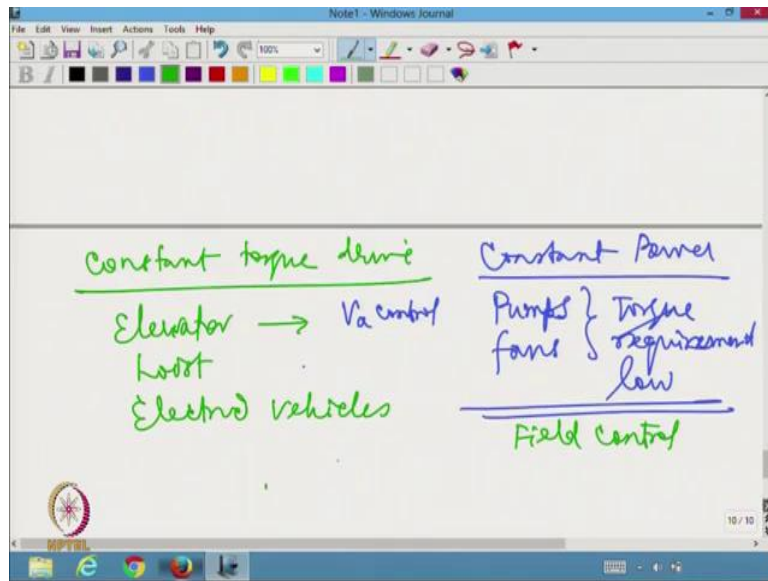 Note1 - Windows Journal
File Edit View Insert Actions Tools Help
100%
B I
Constant torque drive
Elevator → Va control
hoist
Electric vehicles
Constant Power
Pumps } Torque
fans } requirement
low
Field control
NPTEL
10 / 10